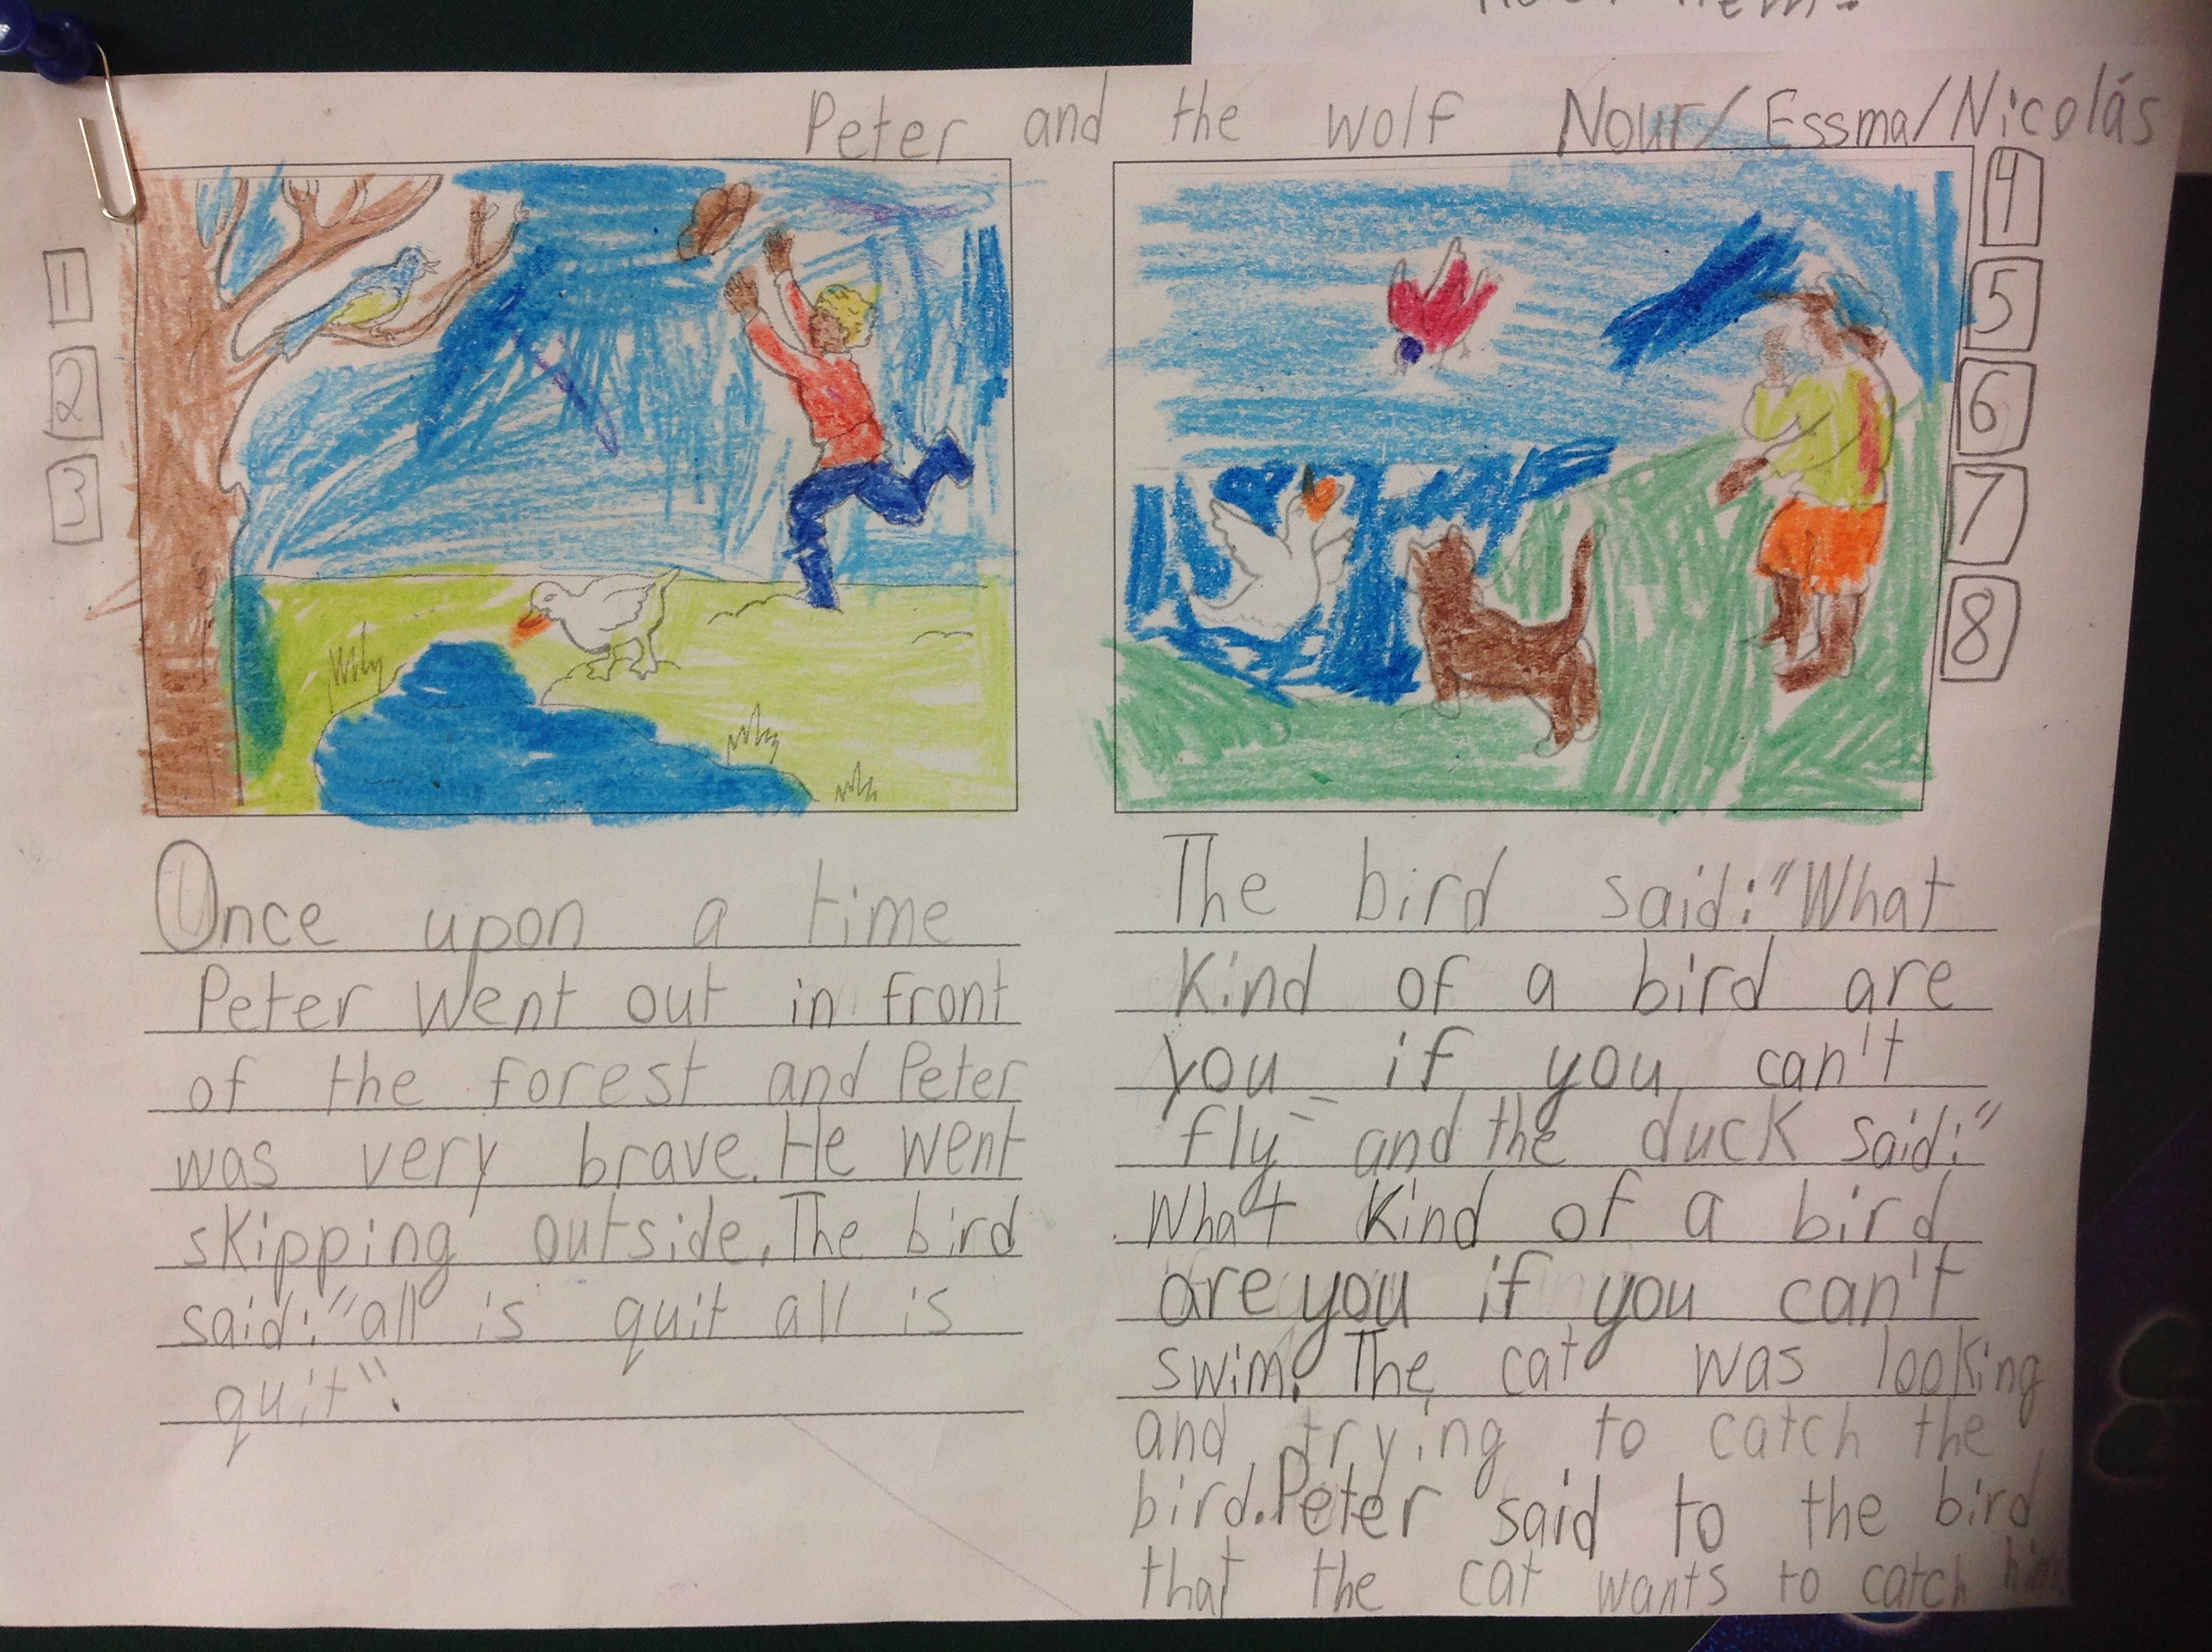 Peter and the wolf Nour/Essma/Nicolás
1
2
3
4
5
6
7
8
Once upon a time
Peter went out in front
of the forest and Peter
was very brave. He went
skipping outside. The bird
said:"all is quit all is
quit".
The bird said:"What
Kind of a bird are
you if you can't
fly" and the duck said:"
What Kind of a bird
are you if you can't
swim. The cat was looking
and trying to catch the
bird. Peter said to the bird
that the cat wants to catch him